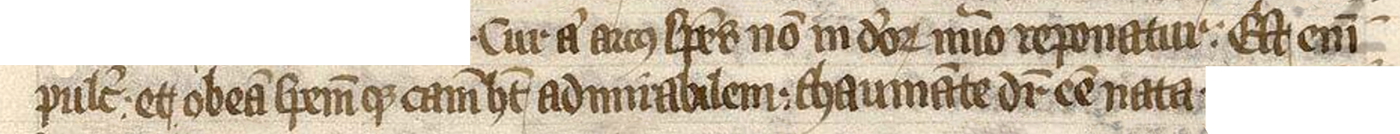 Cur a͛ arcꝯ spe͛s nō in do͛ꝝ nūo reponatur. Est em̄
pulc͛. et ob eā spem̄ qꝫ cam̄ hꝫ admirabilem. thaumāte dr̄ cē nata.